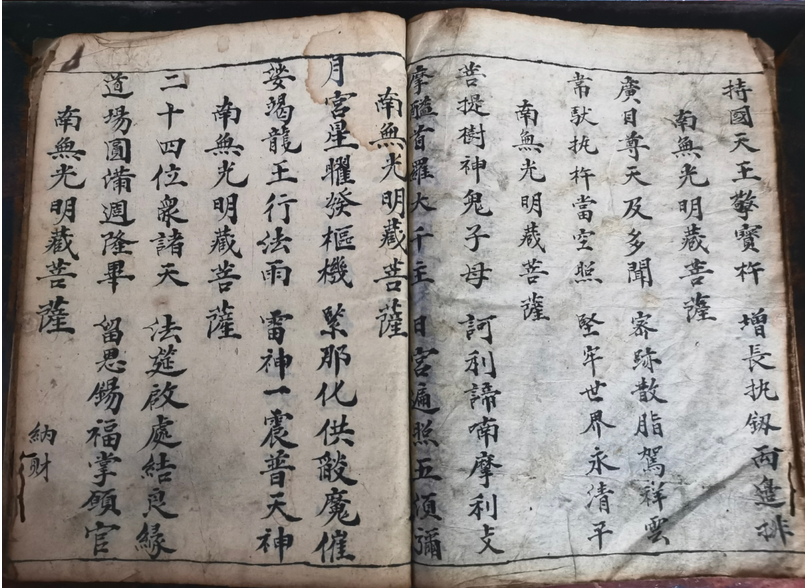 持國天王擎寶杵 增長執釰兩邊排
南無光明藏菩薩
廣目尊天及多聞 密跡散脂駕祥雲
常馱执杵當空照 堅牢世界永清平
南無光明藏菩薩
菩提樹神鬼子母 訶利諦喃摩利支
摩醯首羅大千主 日宮遍照五須彌
南無光明藏菩薩
月宮星曜發樞機 緊那化供敵魔催
娑竭龍王行法雨 雷神一震普天神
南無光明藏菩薩
二十四位衆諸天 法筵啟處結良緣
道場圓滿週隆畢 留恩錫福掌領官
南無光明藏菩薩
納財